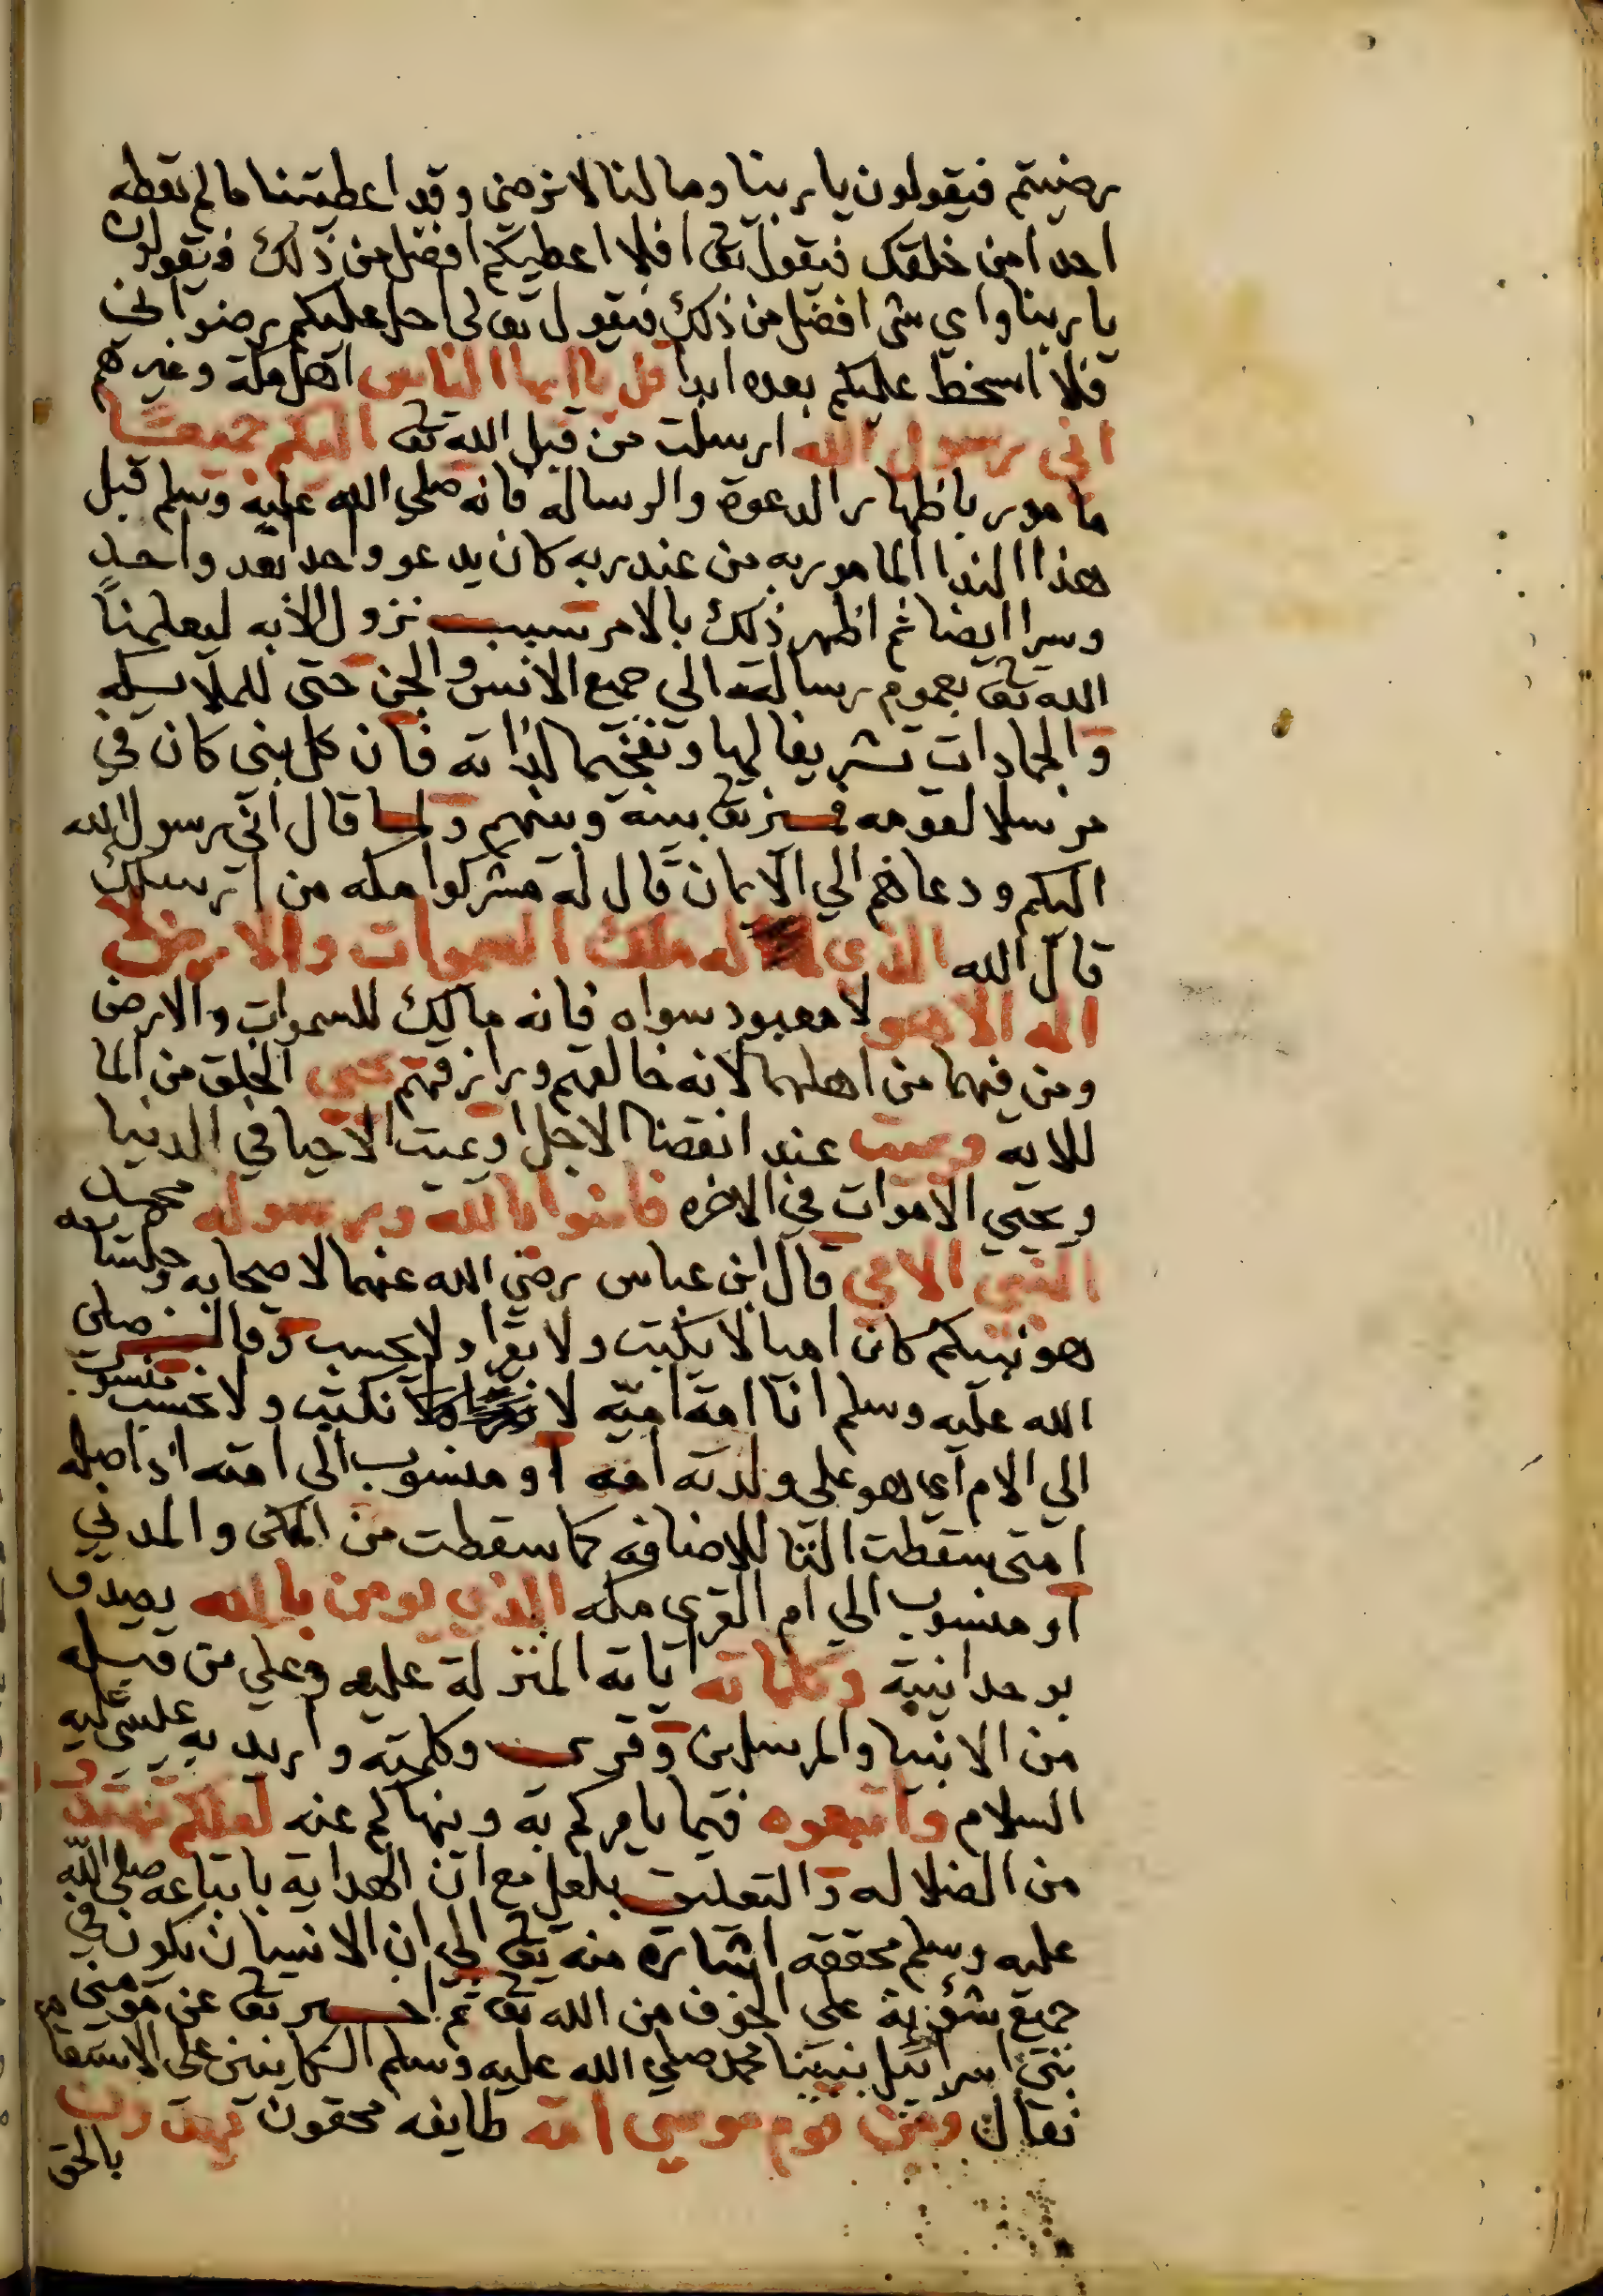 رضيتم فيقولون يا ربنا وما لنا لا نرضى وقد اعطيتنا ما لم تعطه
احدا من خلقك فيقول تعا افلا اعطيكم افضل من ذلك فيقولون
يا ربنا واي شي افضل من ذلك فيقول تعالى احل عليكم رضواني
فلا اسخط عليكم بعده ابدا قل يا ايها الناس اهل مكة وغيرهم
اني رسول الله ارسلت من قبل الله تعا اليكم جميعا
مامور باظهار الدعوة والرسالة فانه صلي الله عليه وسلم قبل
هذا الندا المامور به من عند ربه كان يدعو واحدا بعد واحد
وسرا ايضا ثم اظهر ذلك بالامر بسبب نزول الايه ليعلمنا
الله تعا بعموم رسالته الي جميع الانس والجن حتى للملايكه
والجمادات تشريفا لها وتفخيما لذاته فان كل نبي كان في
مرسلا لقومه بينه وبينهم ولما قال اني رسول الله
اليكم ودعاهم الي الايمان قال له مشركوا مكه من ارسلك
قال الله الذي له ملك السموات والارض لا
اله الا هو لا معبود سواه فانه مالك للسموات والارض
ومن فيهما من اهلهما لانه خالقهم ورازقهم يحيي الخلق من الما
للايه ويميت عند انقضا الاجل او يميت الاحيا في الدنيا
ويحيي الاموات في الاخره فامنوا بالله ورسوله محمد
النبي الامي قال ابن عباس رضي الله عنهما لاصحابه وجلسايه
هو نبيكم كان اميا لا يكتب ولا يقرا ولا يحسب وقال صلى
الله عليه وسلم انا امة امية لا نكتب ولا نحسب منسوب
الي الام اي هو على ولدته امه او منسوب الى امته اذ اصله
امتى سقطت التا للاضافه كما سقطت من المكى والمدني
او منسوب الي ام القرى مكه الذي يومن بالله يصدق
بوحدانيته وكلماته اياته المنزلة عليه وعلي من قبله
من الانبيا والمرسلين وقرى وكلمته واريد به عيسى عليه
السلام واتبعوه فيما يامركم به وينهاكم عنه لعلكم تهتدو
من الضلاله والتعليق بلعل مع ان الهداية باتباعه صلى الله
عليه وسلم محققه اشارة منه تعا الي ان الانسان يكون في
جميع شؤنه على الخوف من الله تعا ثم اخبر تعا عن مومنى
بني اسرائيل بنبينا محمد صلي الله عليه وسلم الكاينين على الاستقامه
فقال ومن قوم موسى امة طايفه محقون يهدون
بالحق